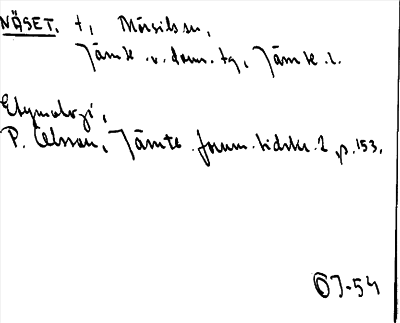 NÄSET. t, Mörsils sn,
Jämtl. v. doms. tg, Jämtl. l.
Etymologi,
P. Olsson, Jämtl. fornm. tidskr. 2 p. 153.
OJ-54